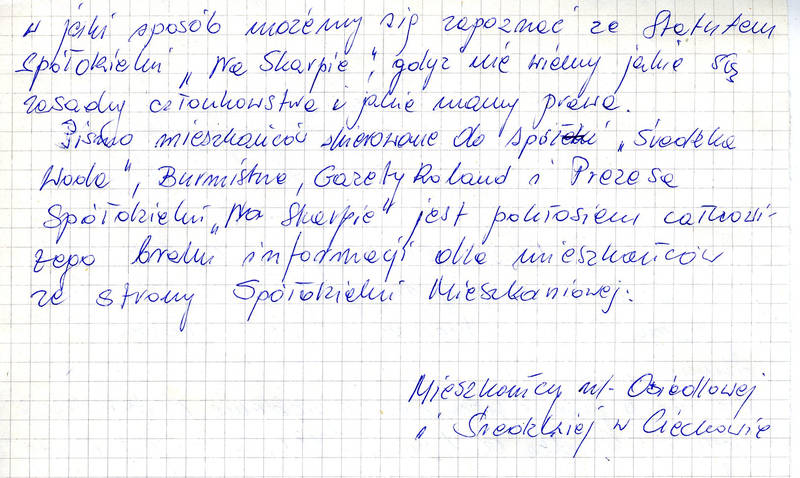 w jaki sposób możemy się zapoznać ze Statutem
Spółdzielni „Na Skarpie”, gdyż nie wiemy jakie są
zasady członkowstwa i jakie mamy prawa.
Pismo mieszkańców skierowane do spółki „Średzka
Woda”, Burmistrza, Gazety Roland i Prezesa
Spółdzielni „Na Skarpie” jest pokłosiem całkowi-
tego braku informacji dla mieszkańców
ze strony Spółdzielni Mieszkaniowej.
Mieszkańcy ul. Osiedlowej
i Średzkiej w Ciechowie